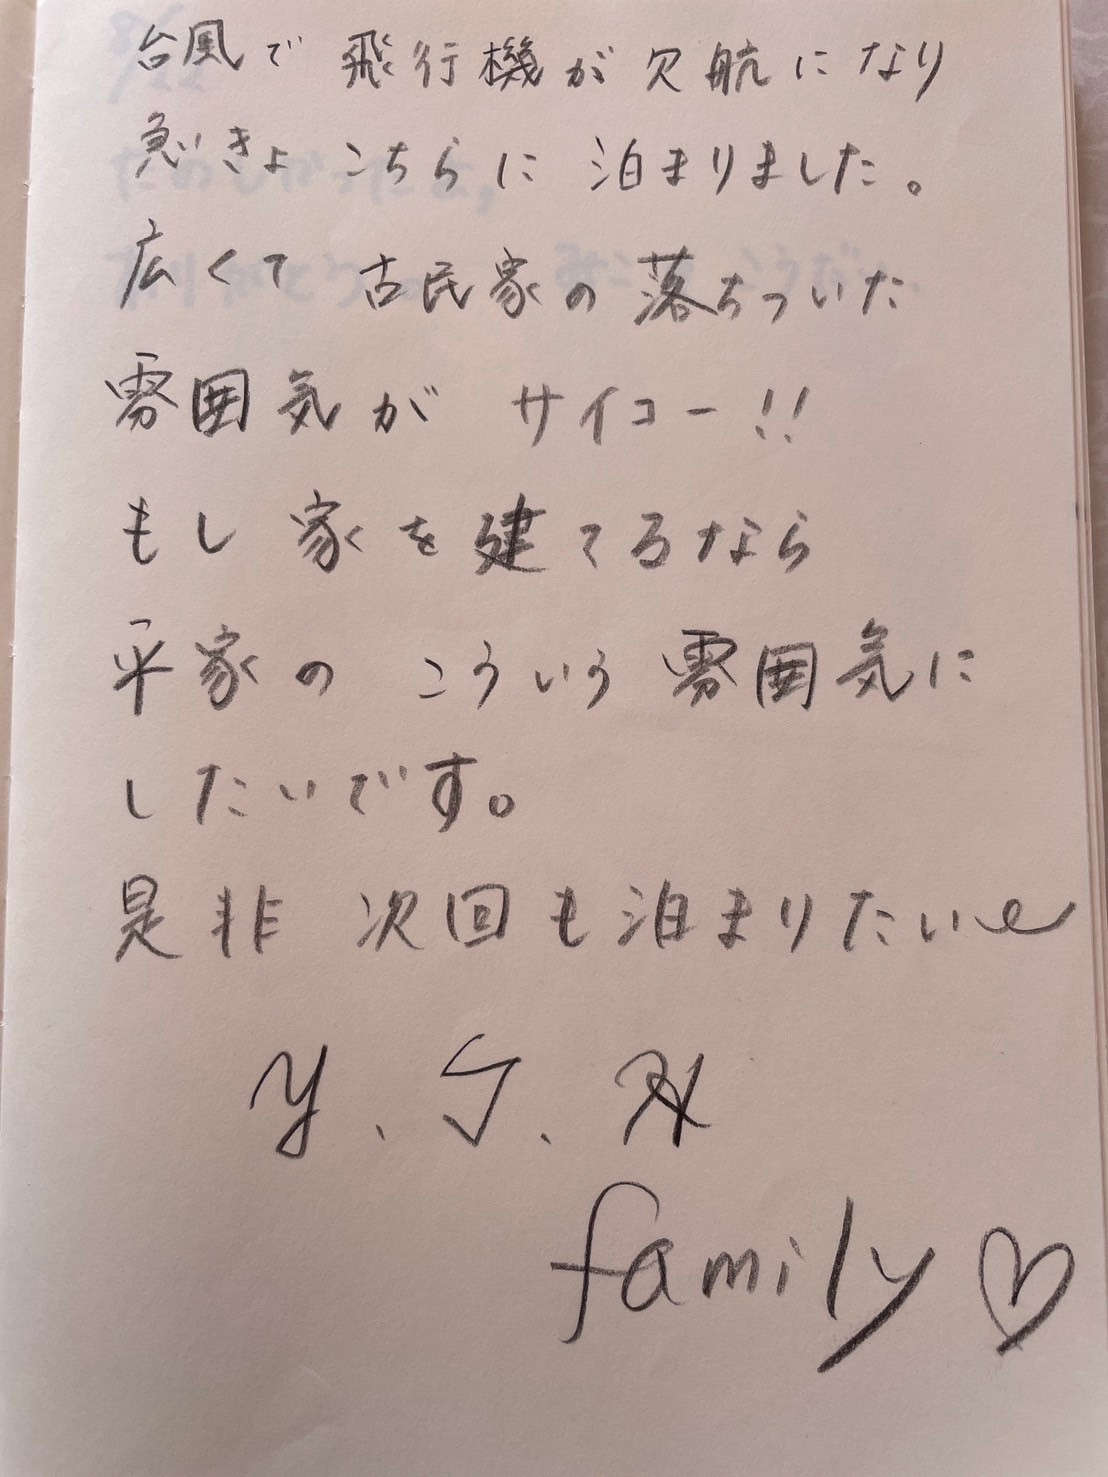 台風で 飛行機が欠航になり
急きょ こちらに 泊まりました。
広くて 古民家の落ちついた
雰囲気が サイコー!!
もし 家を建てるなら
平家の こういう 雰囲気に
したいです。
是非 次回も泊まりたい
Y.J.H
family♡